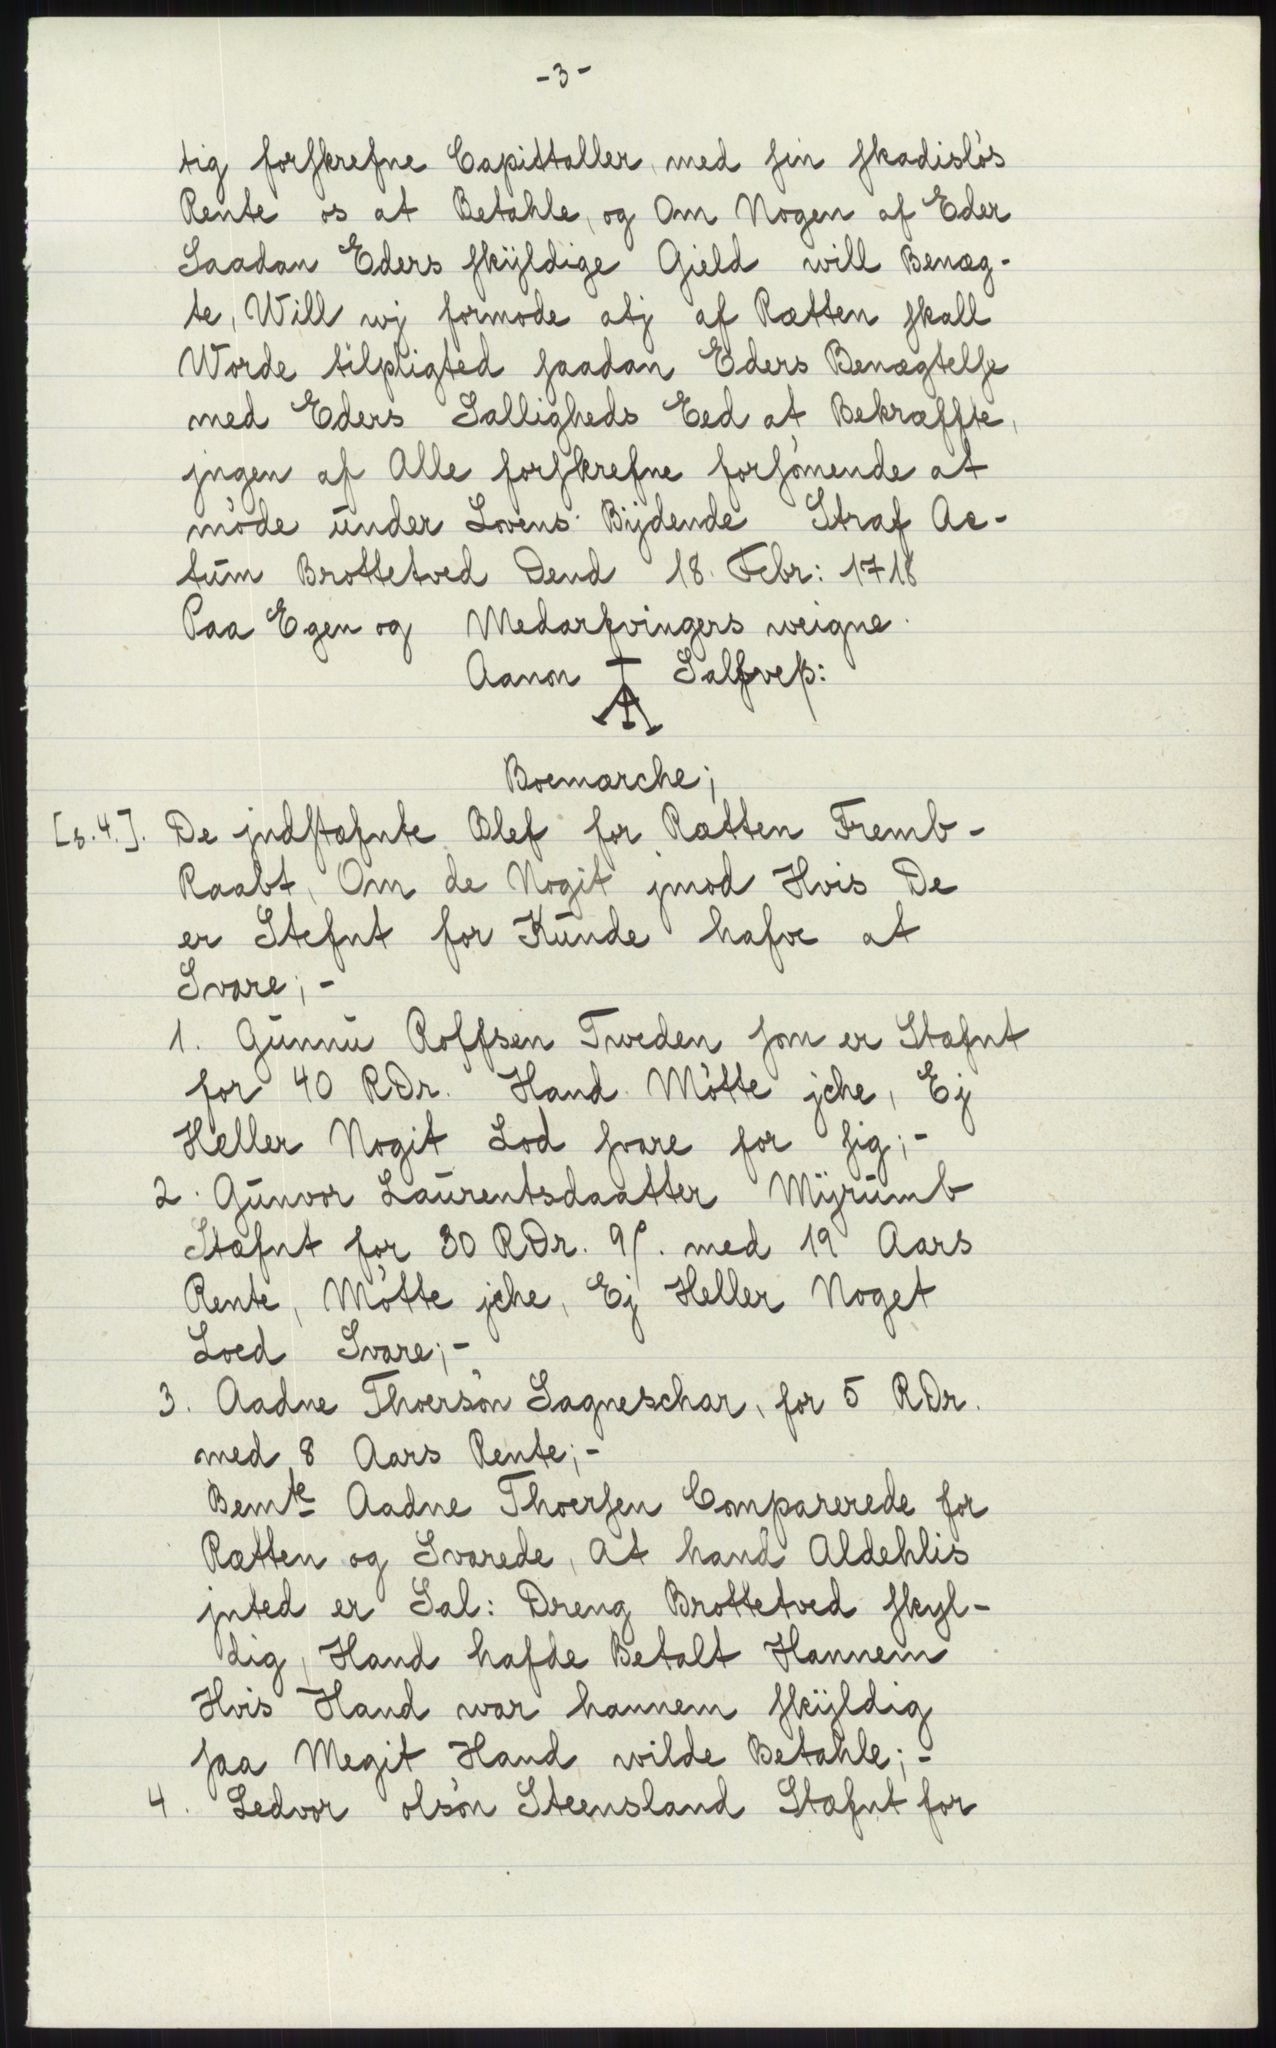 -3-
tig forskrefne Capittaller, med sin skadisløs
Rente os at Betahle, og Om Nogen af Eder
Saadan Eders skÿldige Gield will Benæg-
te, Will wj formode atj af Rætten skall
Worde tilpligted saadan Eders Benægtelse
med Eders Salligheds Eed at Bekræffte,
jngen af Alle forskrefne forsømende at
møde under Lovens Bÿdende Straf Ac-
tum Brottetved Dend 18. Febr: 1718
Paa Egen og Medarfvingers weigne.
Aanon Salfveß:
Boemærche;
[s.4.]. De jndstæfnte Blef for Rætten Fremb-
Raabt, Om de Nogit jmod Hvis De
er Stefnt for Kunde hafve at
Svare;-
1. Gunnu Roffsen Tweden som er Stæfnt
for 40 RDr. Hand Møtte jche, Ej
Heller Nogit Lod svare for sig;-
2. Gunvor Laurentsdaatter Mÿrumb
Stæfnt for 30 RDr. 9ß. med 19 Aars
Rente, Møtte jche, Ej Heller Noget
Loed Svare;-
3. Aadne Thoersøn Lagneschar, for 5 RDr.
med 8 Aars Rente;-
Bemte Aadne Thoersen Comparerede for
Rætten og Svarede, At hand Aldehlis
jnted er Sal: Dreng Brottetved skyl-
dig, Hand hafde Betalt Hannem
Hvis Hand war hannem skÿldig
saa Megit Hand wilde Betahle;-
4. Ledvor olsøn Steensland Stæfnt for